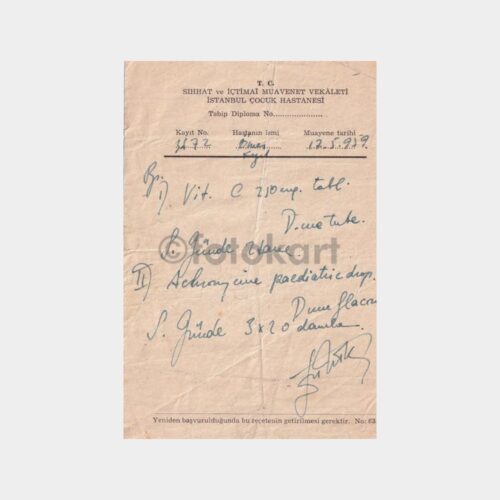 T. C.
SIHHAT ve İÇTİMAİ MUAVENET VEKÂLETİ
İSTANBUL ÇOCUK HASTANESİ
Tabip Diploma No.....................
Kayıt No. Hastanın ismi Muayene tarihi
Rp. I) Vit. C 250 mg. tabl.
D. une tube.
S. Günde
©fotokart
II) Achromycine paediatric drop.
D. une flacon
S. Günde 3x20 damla
Yeniden başvurulduğunda bu reçetenin getirilmesi gerektir. No: 63